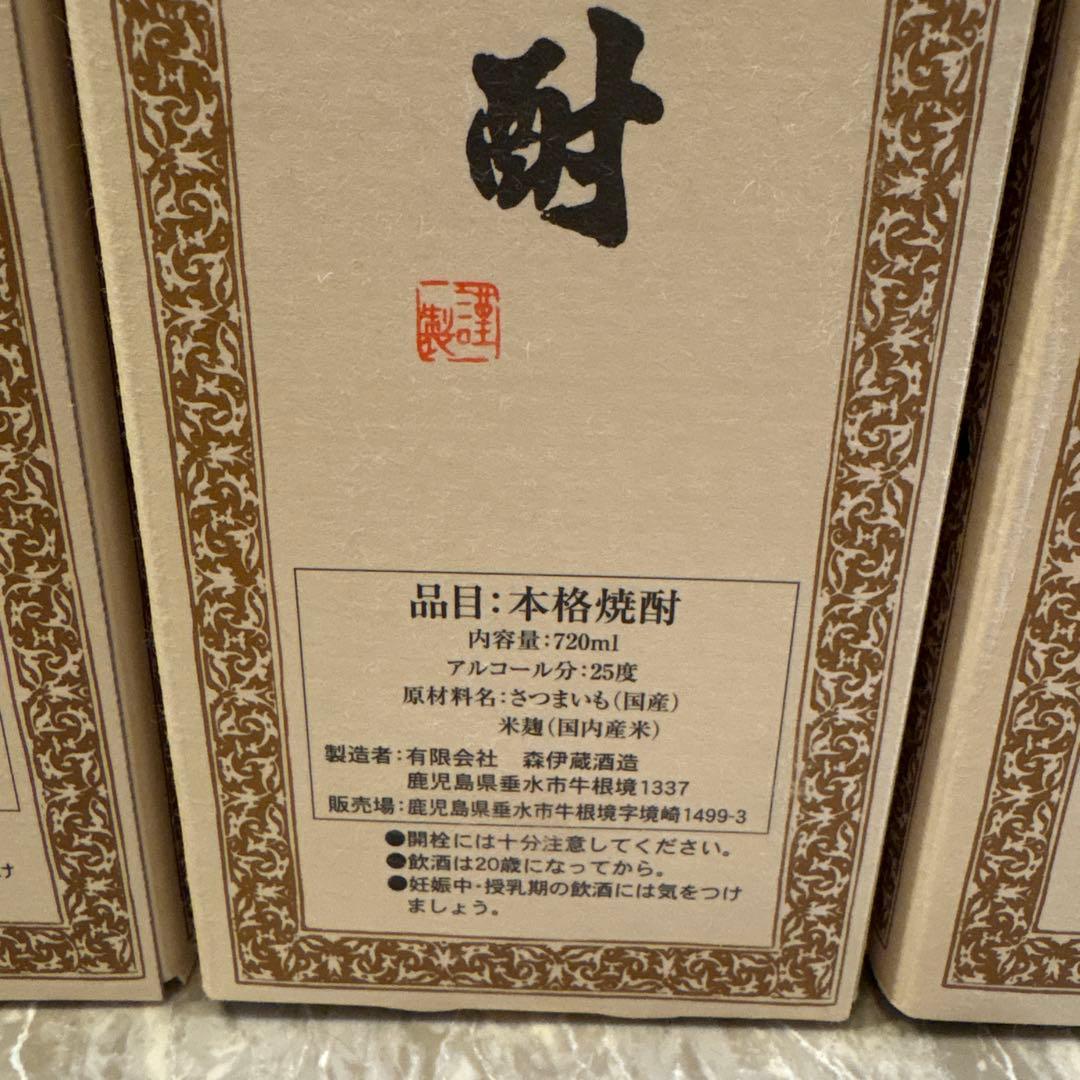 酎
謹製
品目：本格焼酎
内容量：720ml
アルコール分：25度
原材料名：さつまいも（国産）
米麹（国内産米）
製造者：有限会社　森伊蔵酒造
鹿児島県垂水市牛根境1337
販売場：鹿児島県垂水市牛根境字境崎1499-3
●開栓には十分注意してください。
●飲酒は20歳になってから。
●妊娠中・授乳期の飲酒には気をつけ
ましょう。
け